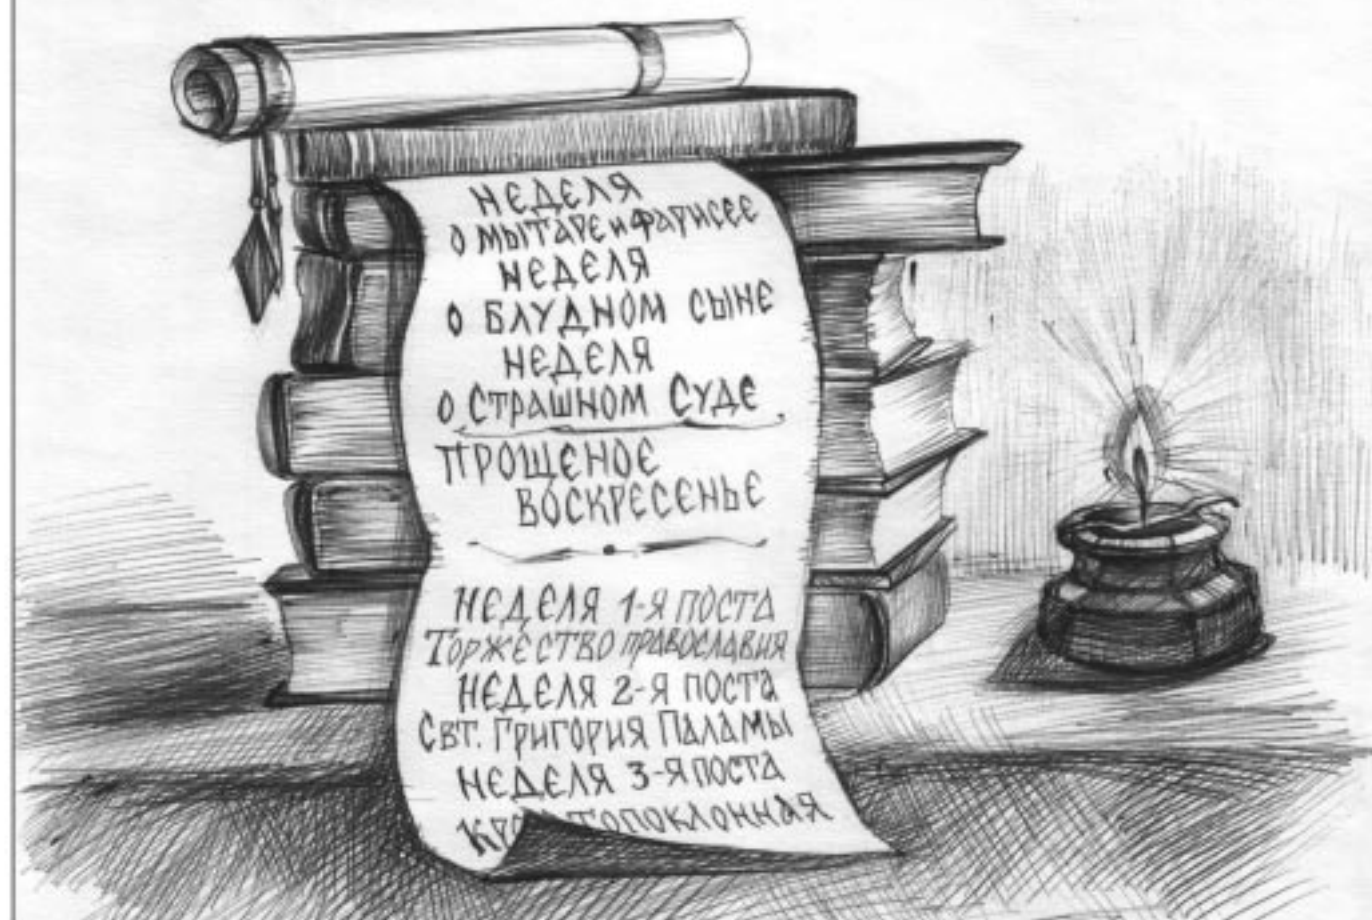 НЕДЕЛЯ
О МЫТАРЕ И ФАРИСЕЕ
НЕДЕЛЯ
О БЛУДНОМ СЫНЕ
НЕДЕЛЯ
О СТРАШНОМ СУДЕ
ПРОЩЕНОЕ
ВОСКРЕСЕНЬЕ
НЕДЕЛЯ 1-Я ПОСТА
ТОРЖЕСТВО ПРАВОСЛАВИЯ
НЕДЕЛЯ 2-Я ПОСТА
СВТ. ГРИГОРИЯ ПАЛАМЫ
НЕДЕЛЯ 3-Я ПОСТА